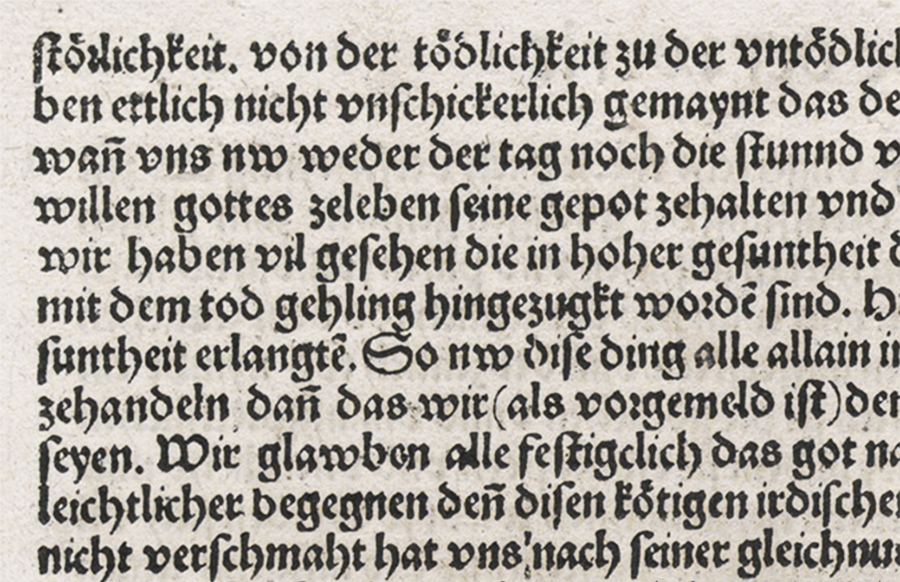 störlichkeit. von der tödlichkeit zu der vntödlich
ben ettlich nicht vnschickerlich gemaynt das de
wañ vns nw weder der tag noch die stunnd v
willen gottes zeleben seine gepot zehalten vnd
wir haben vil gesehen die in hoher gesuntheit d
mit dem tod gehling hingezugkt wordē sind. H
suntheit erlangtē. So nw dise ding alle allain in
zehandeln dañ das wir (als vorgemeld ist) der
seyen. Wir glawben alle festigclich das got na
leichtlicher begegnen deñ disen kötigen irdischen
nicht verschmaht hat vns nach seiner gleichnu